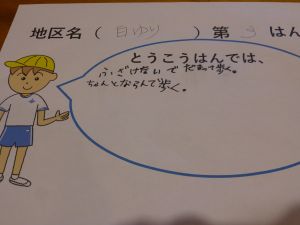 地区名（ 日ゆり ）第 3 はん
とうこうはんでは、
ふざけないで だまって歩く。
ちゃんとならんで歩く。